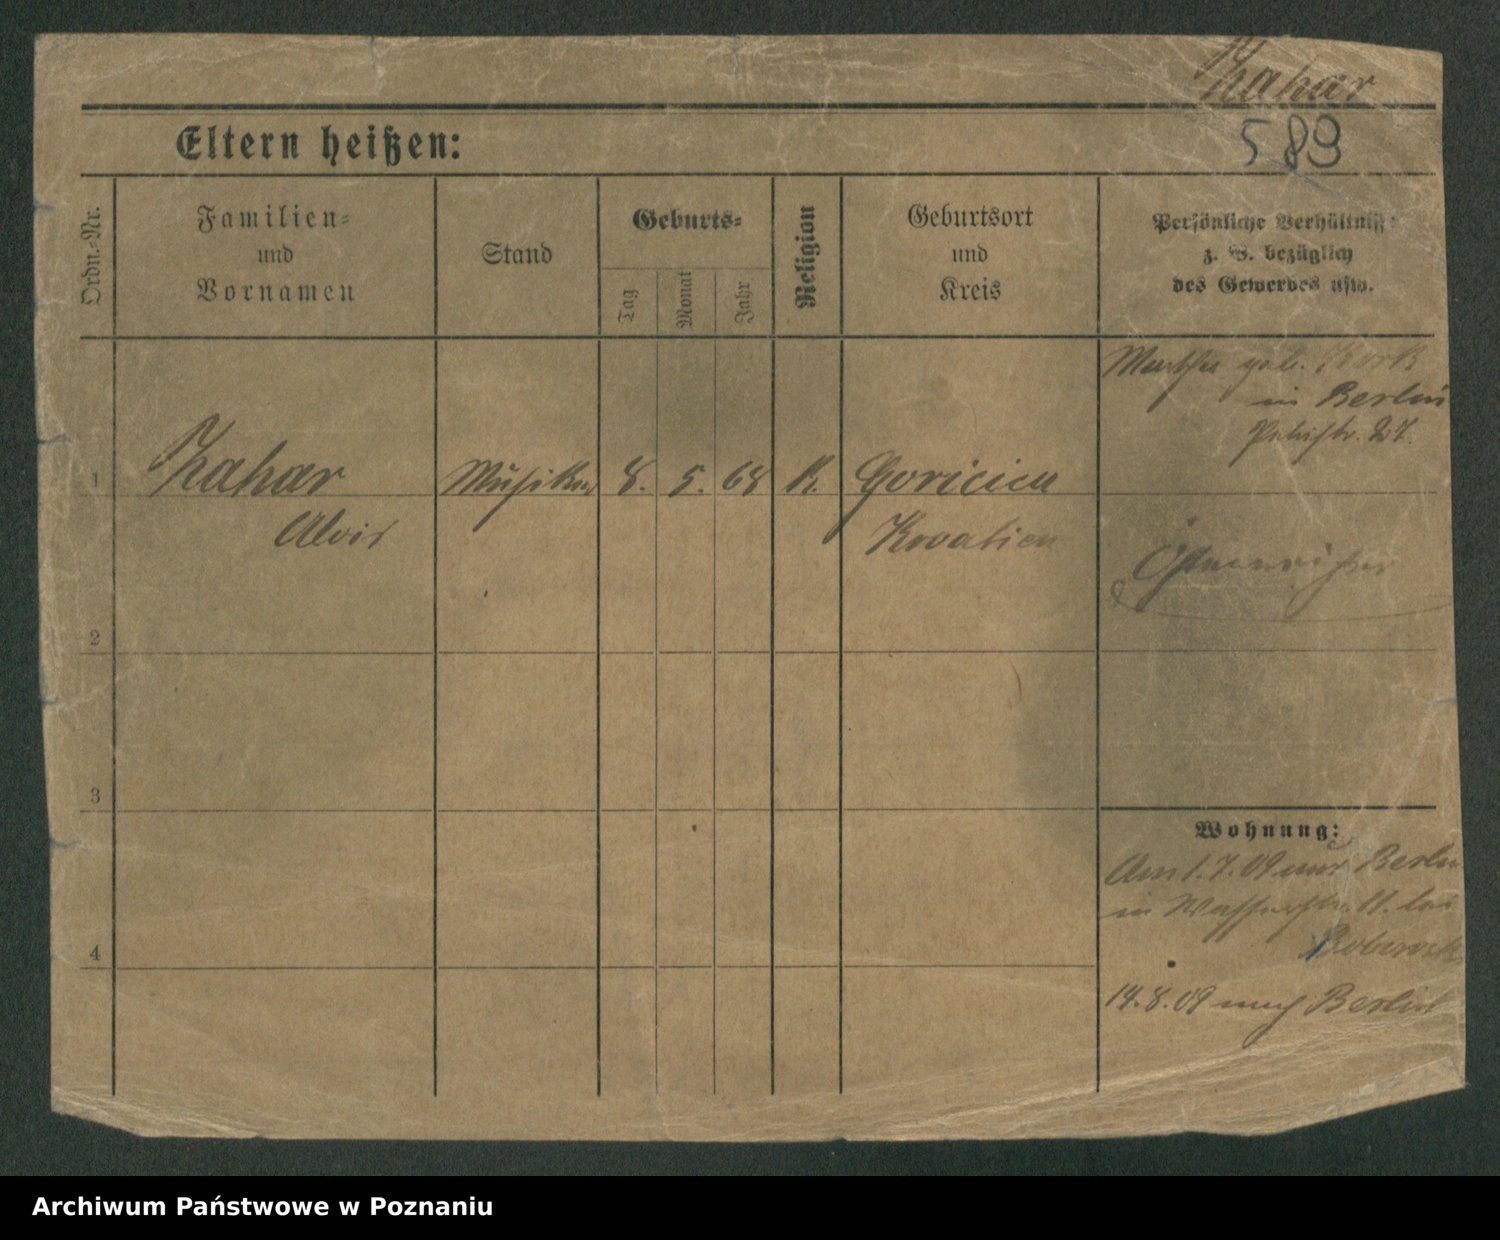 Zahar
589
Eltern heißen:
Ordn.-Nr.
Familien-
und
Vornamen
Stand
Geburts-
Tag
Monat
Jahr
Religion
Geburtsort
und
Kreis
Persönliche Verhältnisse
z. B. bezüglich
des Gewerbes usw.
Martha geb.
in Berlin
27.
1
Zahar
Musiker
8.
5.
68
K.
Goricica
Alois
Kroatien
Österreicher
2
3
Wohnung:
Am 1.7.09 aus Berlin
in Wasserstr. 11. bei
4
14.8.09 nach Berlin
Archiwum Państwowe w Poznaniu